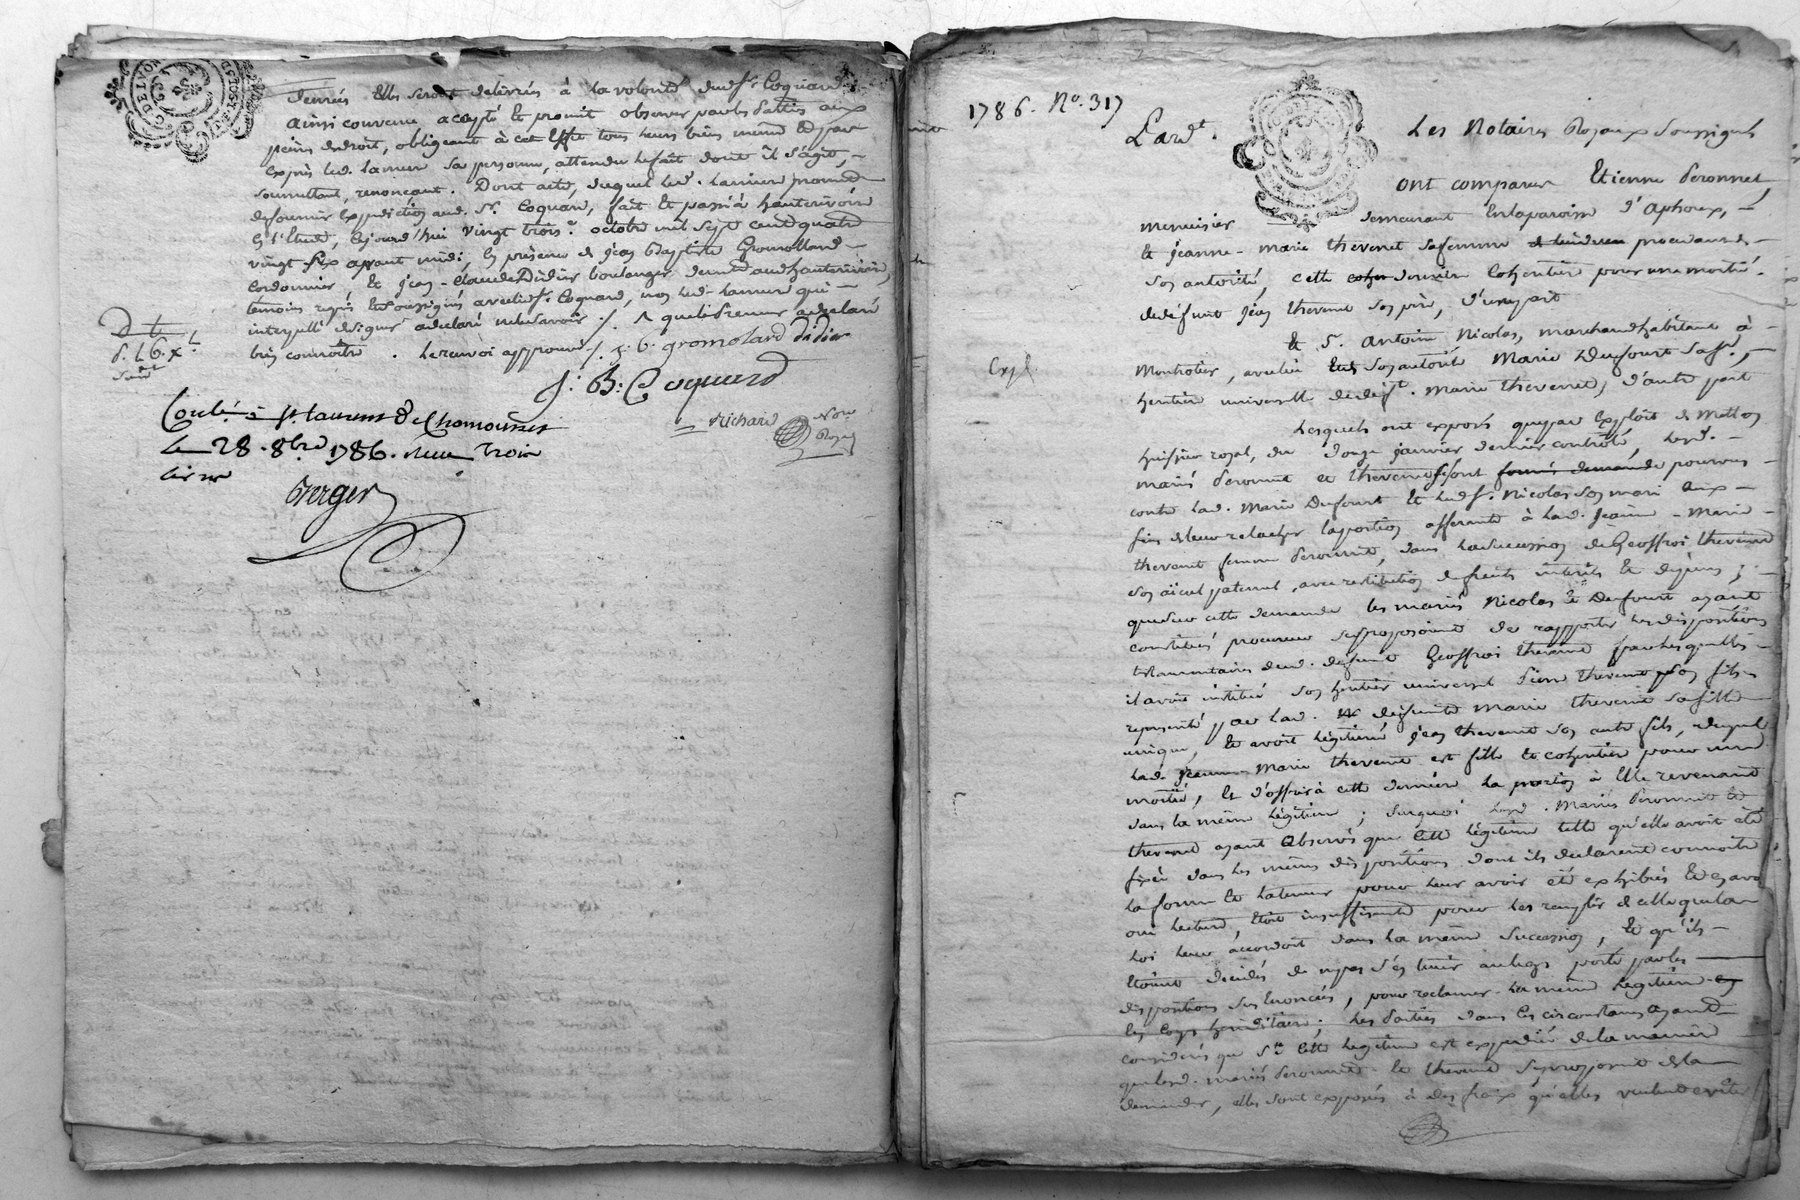 denrées Elles seront délivrés à la volonté dudsr. Coquard
ainsi convenu accepté Et promit observer par les parties aux
peines de droit, obligeant à cet Effet tous leurs biens meme Et par
exprès led. Lameur sa personne, attendu le fait dont il s'agit,
soumettant, renonçant. Dont acte, duquel led. Lameur promet
de fournir Expédition aud. Sr. Coquard, fait Et passé à hauterivoire
En l'Etude, Cejourd'hui vingt trois e. octobre mil sept cent quatre
vingt six avant midi En présence de jean Baptiste Gromollard
Cordonnier, Et jean-Claude Didier boulanger demt. aud. hauterivoire,
témoins requis Et soussignés avec led sr. Coquard, non led. Lameur qui
interpellé de signer a déclaré ne le savoir ./. 
très connoitre. Le renvoi approuvé ./. j. b. gromolard didier
J: B: Coquard
Richard Nore Royal
Conlé à St. Laurent de Chamousset
Le 28. 8bre 1786. Reçu Trois
Berger
1786. No. 317
Lard t.
Les Notaires Royaux Soussignés
Ont comparu Etienne Peronnet,
menuisier demeurant En la paroisse d'aphoux,
Et jeanne-marie thevenet sa femme procedant de
son autorité, cette derniere Cohéritiere pour une moitié
de défunt jean thevenet son pere, d'une part
Et S. antoine Nicolas, marchand habitant à
Montrotier, avec lui Et de son autorité Marie Dufourt sa fe.,
héritiere universelle de déft. Marie thevenet, d'autre part
Lesquels ont exposés que par Exploit de Mathon
huissier royal, du douze janvier dernier controlé, lesd.
mariés Peronnet et thevenet se sont pourvus
contre lad. Marie Dufourt Et led sr. Nicolas son mari aux
fins de leur relacher la portion afferante à lad. jeanne-Marie
thevenet femme Peronnet, dans la succession de Geoffroi thevenet
son aïeul paternel, avec restitution de fruits interets Et dépens;
que sur cette demande les mariés Nicolas Et Dufourt ayant
constitués procureur se proposoient de rapporter les dispositions
testamentaires dud. defunt Geoffroi thevenet par lesquelles
il avoit institué son heritier universel Pierre thevenet son fils
représenté par lad. defunte Marie thevenet sa fille
unique, Et avoit légitimé jean thevenet son autre fils, duquel
lad. jeanne-Marie thevenet est fille Et cohéritiere pour une
moitié, Et d'offrir à cette derniere la portion à Elle revenant
dans la même légitime; surquoi lesd. Mariés Peronnet Et
thevenet ayant Observés que Cette légitime telle qu'elle avoit été
fixée dans les mêmes dispositions dont ils declarent connoitre
la forme Et la teneur pour leur avoir été exhibés Et En avoir
oui lecture, Etoit insuffisante pour les remplir de celle que la
loi leur accordoit dans la même succession, Et qu'ils
Etoient décidés de ne pas s'en tenir au legs porté par les
dispositions sus Enoncées, pour réclamer la même légitime
En Corps héréditaires; les parties dans Ces circonstances ayant
considérés que si Cette légitime est expediée de la maniere
que lesd. mariés Peronnet Et thevenet se proposent de la
demander, elles sont exposées à des fraix qu'elles veulent eviter